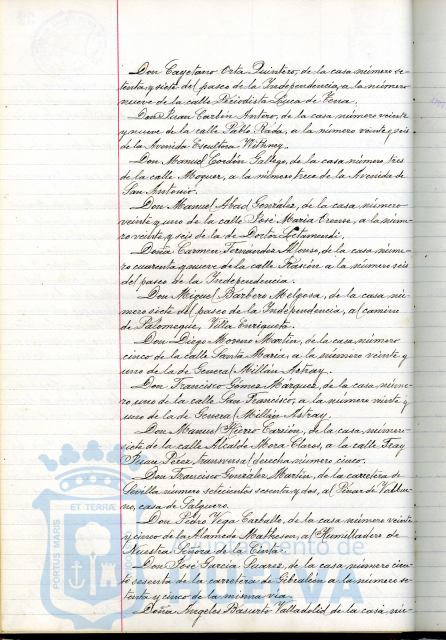 Don Cayetano Orta Quintero, de la casa número se-
tenta y siete del paseo de la Independencia, a la número
nueve de la calle Periodista Luca de Tena.
Don Juan Carbén Antero, de la casa número veinte
y nueve de la calle Pablo Rada, a la número veinte y seis
de la Avenida Escultora Withney.
Don Manuel Cordón Gallego, de la casa número tres
de la calle Moguer, a la número trece de la Avenida de
San Antonio.
Don Manuel Abad González, de la casa número
veinte y uno de la calle José María a la núme-
ro veinte y seis de la de Doctor Letamendi.
Doña Carmen Fernández Alonso, de la casa núme-
ro cuarenta y nueve de la calle Rascón a la número seis
del paseo de la Independencia.
Don Miguel Barbero Melgosa, de la casa nú-
mero siete del paseo de la Independencia, al camino
de Palomeque, Villa Enriqueta.
Don Diego Moreno Martín, de la casa número
cinco de la calle Santa María, a la número veinte y
uno de la de General Millán Astray.
Don Francisco Gómez Márquez, de la casa núme-
ro uno de la calle San Francisco, a la número viente y
uno de la de General Millán Astray.
Don Manuel Carrión, de la casa número
siete de la calle Alcalde Mora Claros, a la calle Fray
Juan Pérez, transversal derecha número cinco.
Don Francisco González Martín, de la carretera de
Sevilla número setecientos sesenta y dos, al Pinar de
no, casa de Salguero.
Don Pedro Vega Carballo, de la casa número veinte
y cinco de la Alameda Matheson, al Humilladero de
Nuestra Señora de la Cinta.
Don José García Suarez, de la casa número cien-
to sesenta de la carretera de Gibraleón a la número se-
tenta y cinco de la misma vía.
Doña Angeles Basurto Valladolid, de la casa nú-
PORTUS MARIS
ET TERRAE